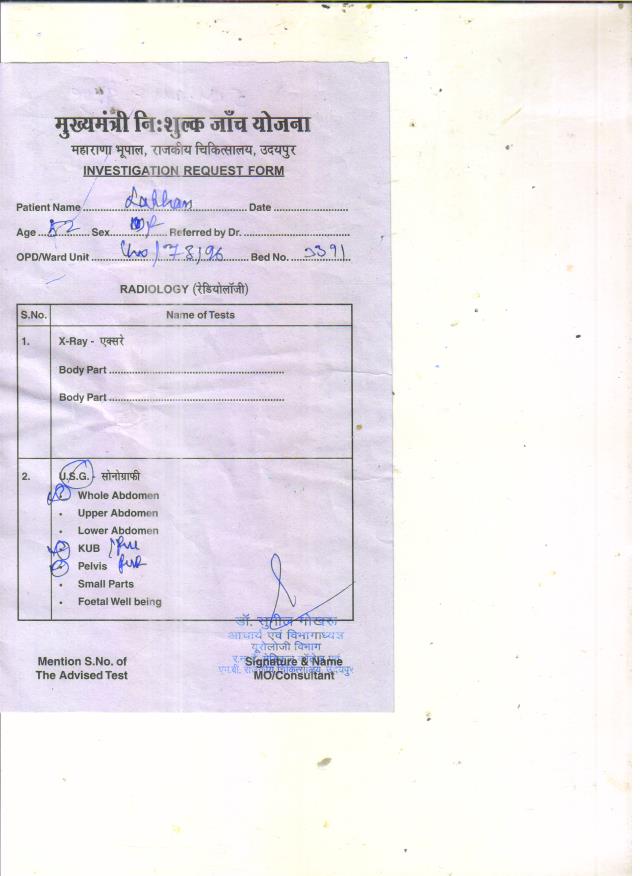 मुख्यमंत्री निःशुल्क जाँच योजना
महाराणा भूपाल, राजकीय चिकित्सालय, उदयपुर
INVESTIGATION REQUEST FORM
Patient Name ........ Lakhan ........ Date ........
Age ........ Sex ........ Referred by Dr. ........
OPD/Ward Unit ........ Bed No. 3391
RADIOLOGY (रेडियोलॉजी)
S.No. Name of Tests
1. X-Ray - एक्सरे
Body Part ........
Body Part ........
2. U.S.G. - सोनोग्राफी
• Whole Abdomen
• Upper Abdomen
• Lower Abdomen
• KUB
• Pelvis
• Small Parts
• Foetal Well being
डॉ. सुनील गोखरू
आचार्य एवं विभागाध्यक्ष
यूरोलोजी विभाग
Mention S.No. of Signature & Name
The Advised Test MO/Consultant